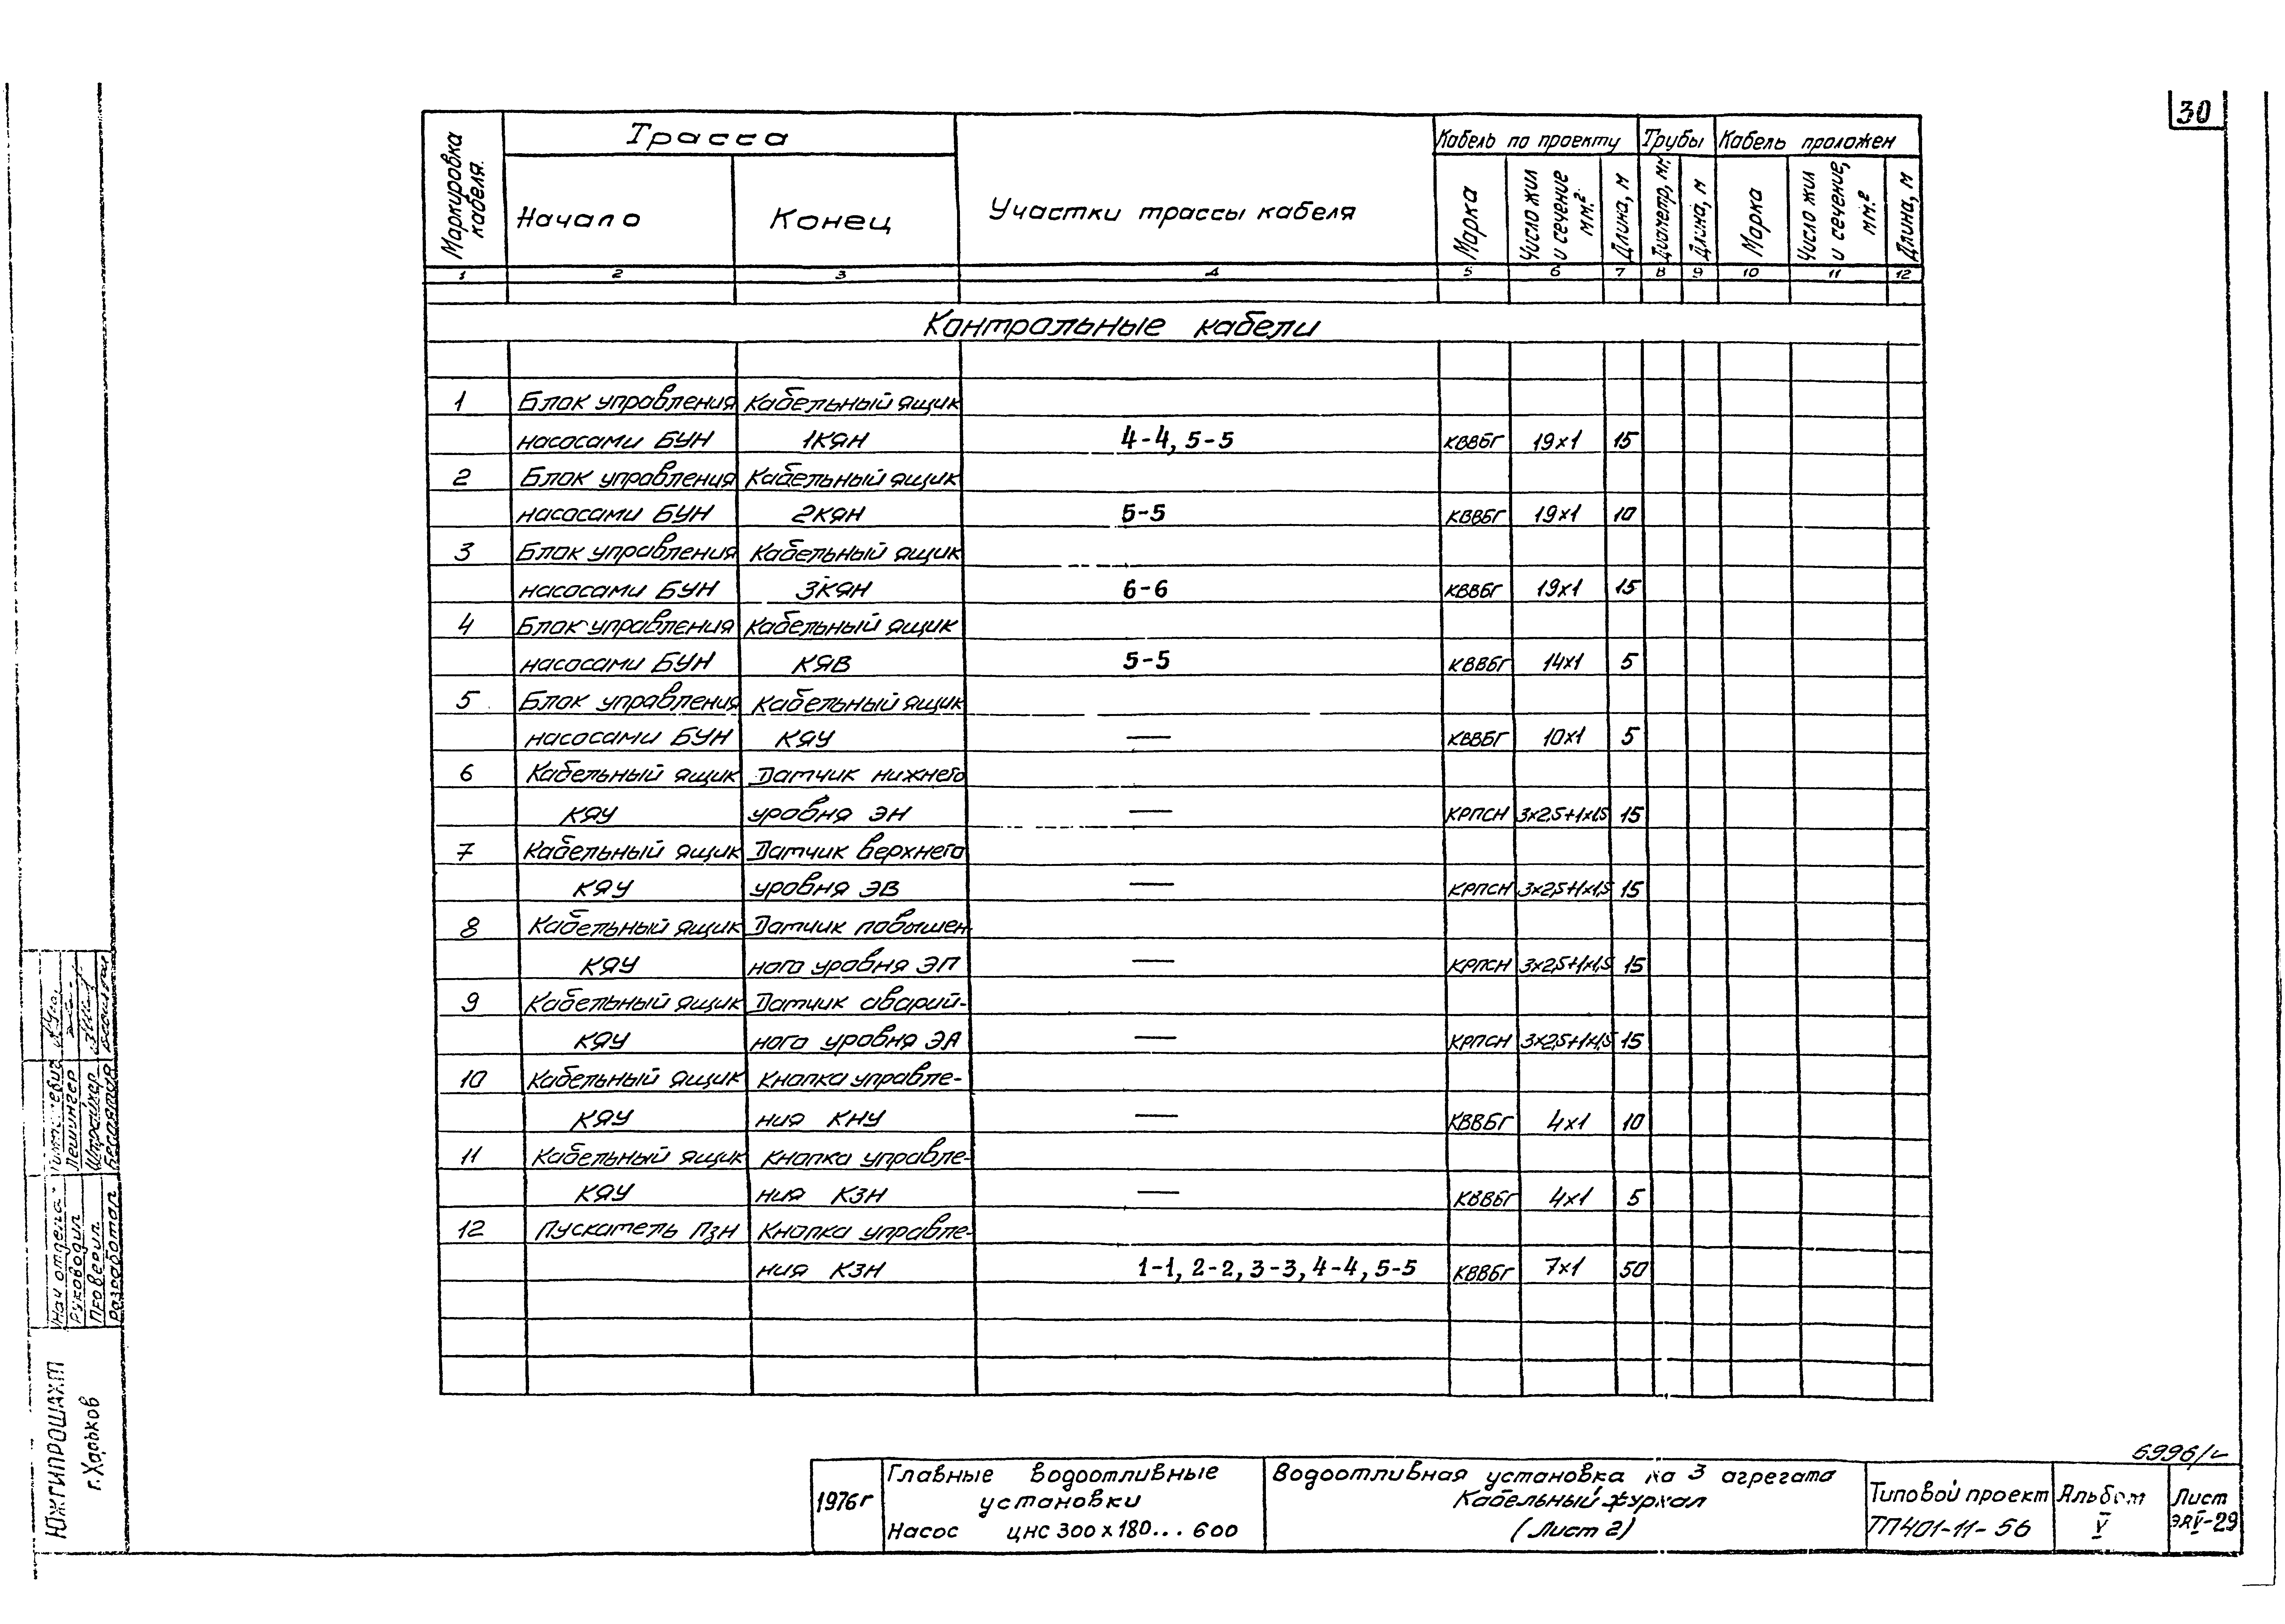 30
Маркировка кабеля.
Трасса
Начало
Конец
Участки трассы кабеля
Кабель по проекту
Трубы
Кабель проложен
Марка
Число жил и сечение мм.²
Длина, м
Диаметр, мм.
Длина, м
Марка
Число жил и сечение, мм.²
Длина, м
1 2 3 4 5 6 7 8 9 10 11 12
Контрольные кабели
1 Блок управления Кабельный ящик
насосами БУН 1КЯН 4-4, 5-5 КВВБГ 19х1 15
2 Блок управления Кабельный ящик
насосами БУН 2КЯН 5-5 КВВБГ 19х1 10
3 Блок управления Кабельный ящик
насосами БУН 3КЯН 6-6 КВВБГ 19х1 15
4 Блок управления Кабельный ящик
насосами БУН КЯВ 5-5 КВВБГ 14х1 5
5 Блок управления Кабельный ящик
насосами БУН КЯУ — КВВБГ 10х1 5
6 Кабельный ящик Датчик нижнего
КЯУ уровня ЭН — КРПСН 3х2,5+1х1,5 15
7 Кабельный ящик Датчик верхнего
КЯУ уровня ЭВ — КРПСН 3х2,5+1х1,5 15
8 Кабельный ящик Датчик повышен-
КЯУ ного уровня ЭП — КРПСН 3х2,5+1х1,5 15
9 Кабельный ящик Датчик аварий-
КЯУ ного уровня ЭА — КРПСН 3х2,5+1х1,5 15
10 Кабельный ящик Кнопка управле-
КЯУ ния КНУ — КВВБГ 4х1 10
11 Кабельный ящик Кнопка управле-
КЯУ ния КЗН — КВВБГ 4х1 5
12 Пускатель ПЗН Кнопка управле-
ния КЗН 1-1, 2-2, 3-3, 4-4, 5-5 КВВБГ 7х1 50
Нач отдела
Руководил Лешингер
Проверил Штрайхер
Разработал
ЮЖГИПРОШАХТ
г. Харьков
6996/
1976г
Главные водоотливные
установки
Насос ЦНС 300х180...600
Водоотливная установка на 3 агрегата
Кабельный журнал
(Лист 2)
Типовой проект
ТП401-11-56
Альбом
V
Лист
ЭАV-29